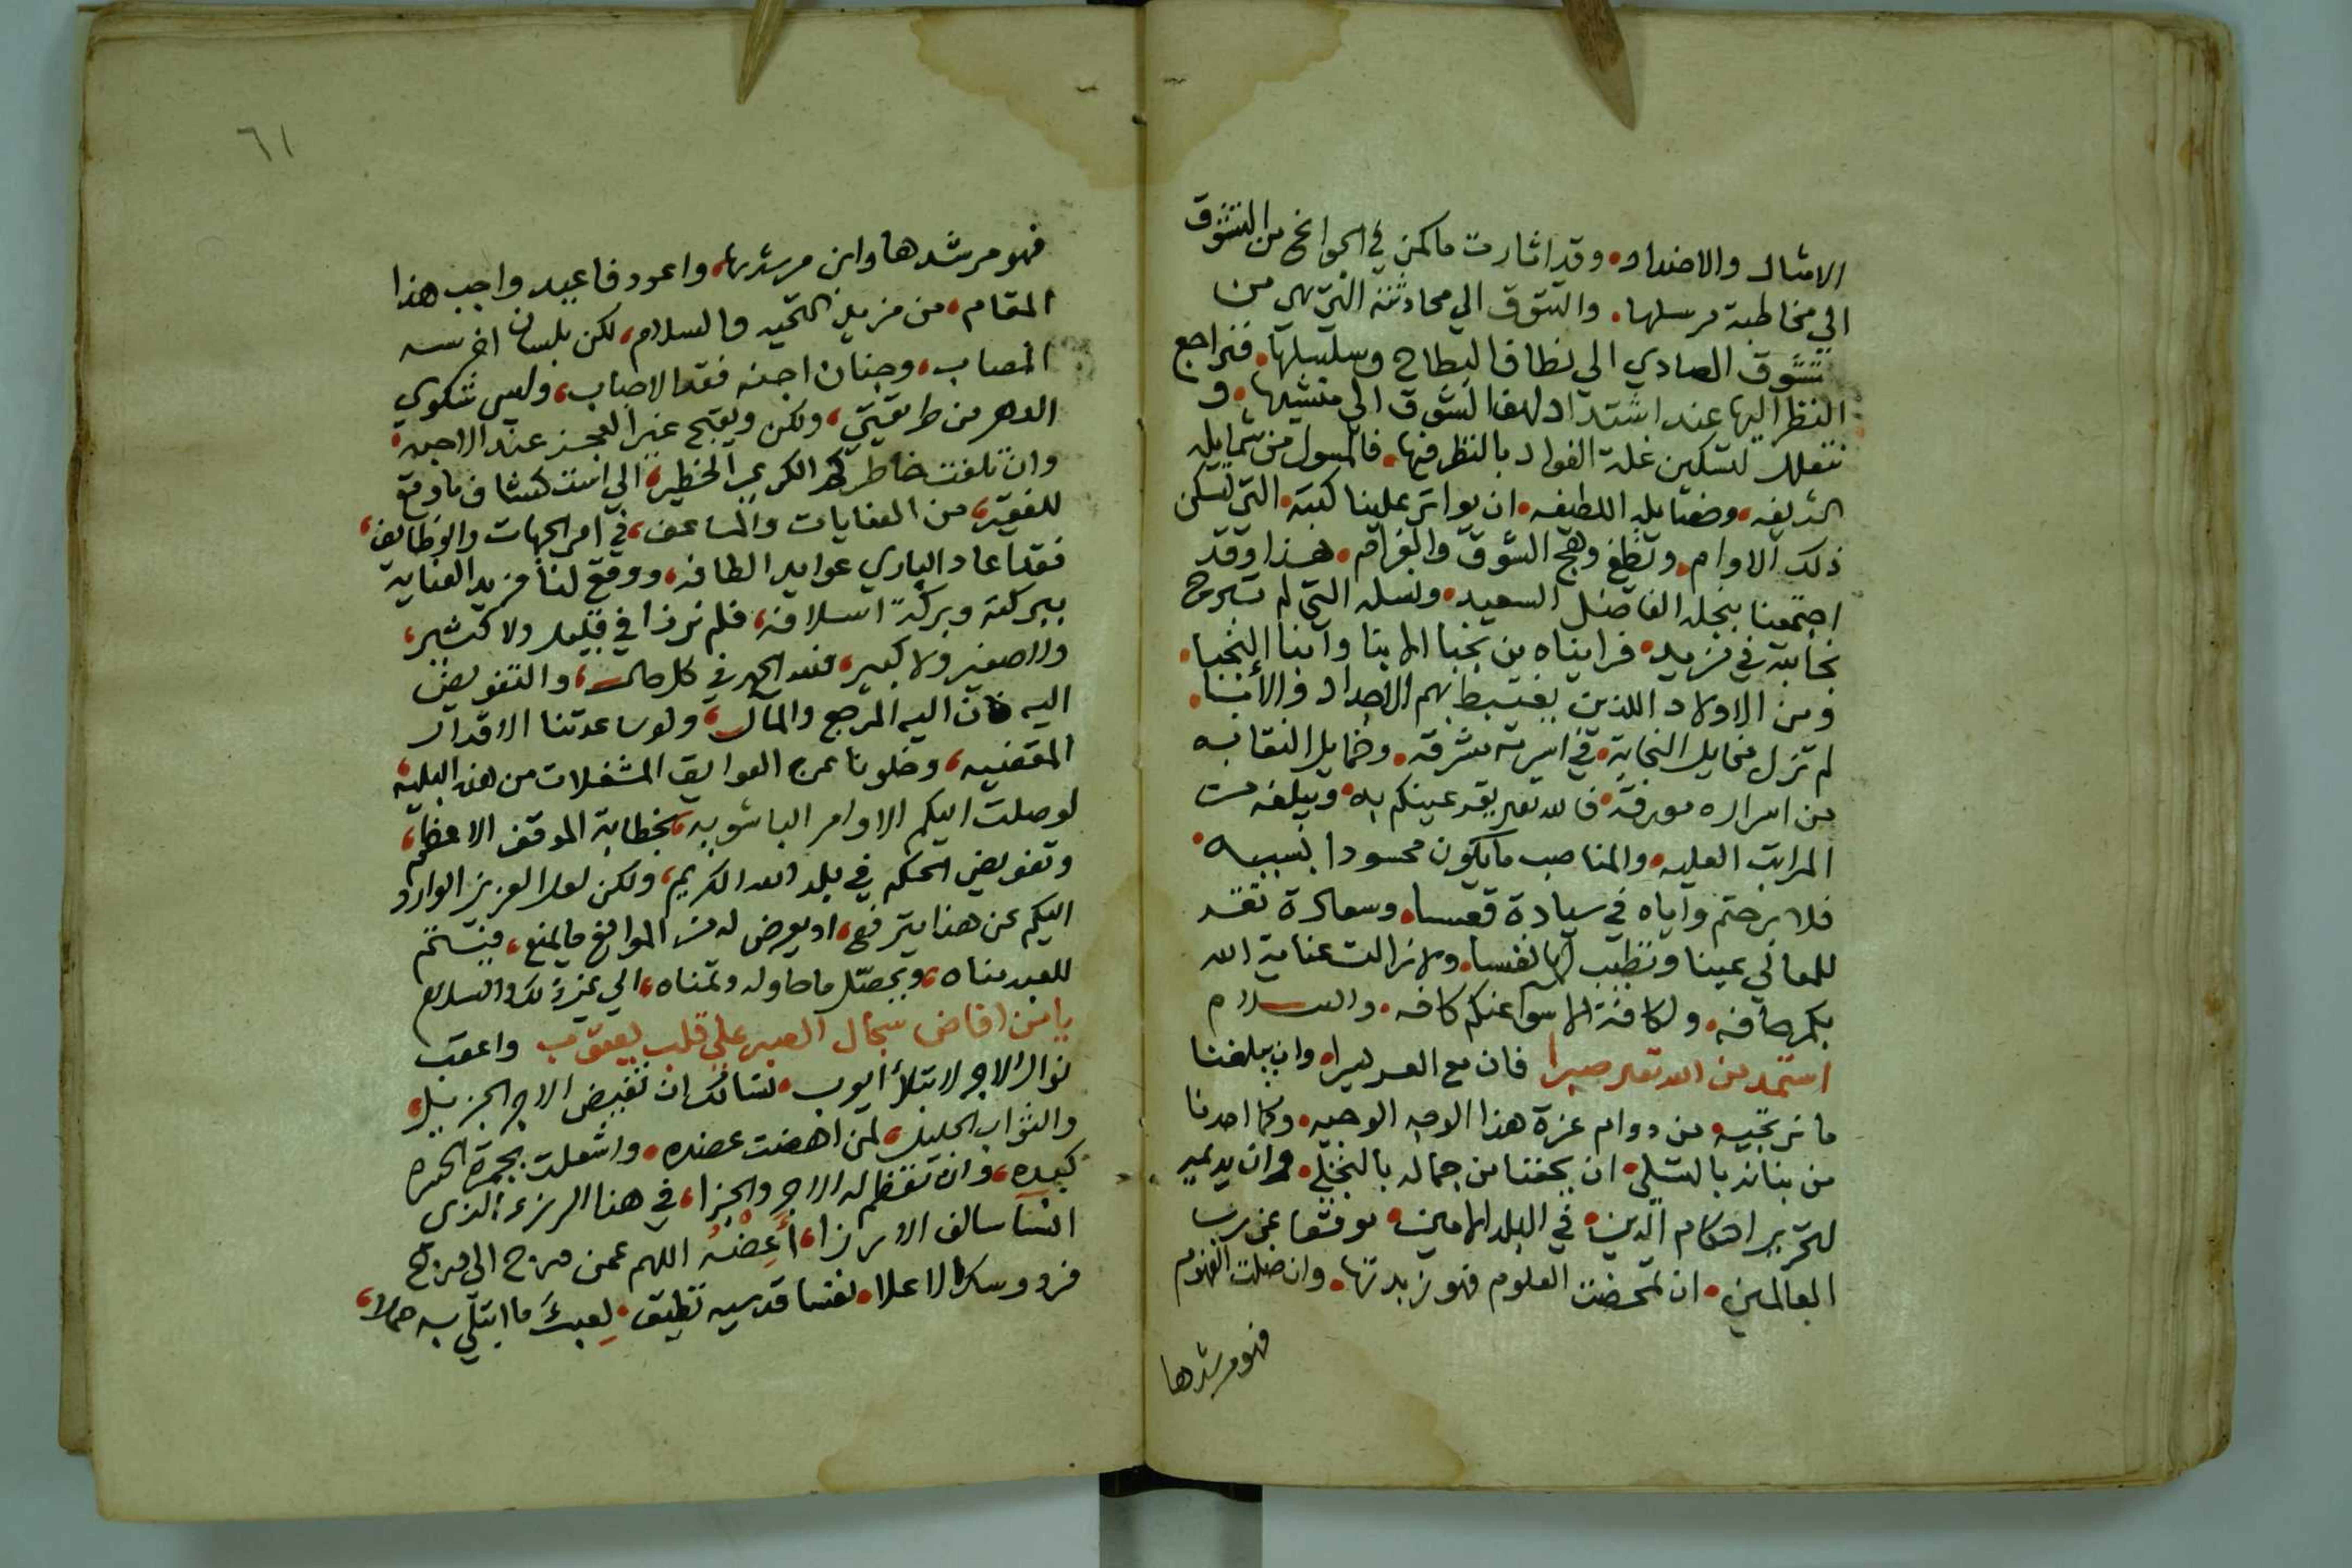 الامثال والاضداد، وقد اثارت ما كمن في الجوانح من التشوق
الي مخاطبة مرسلها، والتتوق الي محادثته التي هي من
تشوق الصادي الي نطاف البطاح وسلسبيلها، فنراجع
النظر اليها عند اشتداد لهف الشوق الي منشيها، و
نتعلل لتسكين غلة الفواد بالنظر فيها، فالمسول من شمايله
الشريفه، وفضايله اللطيفه، ان يواتر علينا كتبه، التي تسكن
ذلك الاوام، وتطفي وهج الشوق والغرام، هذا وقد
اجتمعنا بنجله الفاضل السعيد، ونسله التي لم تبرح
نجابته في مزيد، فرايناه من نجبا الابنا وابنا النجبا،
ومن الاولاد اللذين يغتبط بهم الاجداد والابا،
لم تزل مخايل النجابة، في اسرته مشرقه، وخمايل النقابه
من اسراره مورقة، فالله تعالى يقر عينكم به، ويبلغه من
المراتب العليه، والمناصب ما يكون محسودا بسببه،
فلا برحتم واياه في سيادة قعسا، وسعادة تقر
للمعالي عينا وتطيب لها نفسا، ولا زالت عناية الله
بكم حافه، ولكافة الاسوا عنكم كافه، والسلام
استمد من الله تعالى صبرا فان مع العسر يسرا، وان يبلغنا
ما نرتجيه من دوام عزة هذا الاوجه الوجيه، وكما امدنا
من بنانه بالتسلي، ان يتحفنا من جماله بالتجلي، وان يديمه
لتحرير احكام الدين، في البلد الامين، موقعا عن رب
العالمين، ان تمخضت العلوم فهو زبدتها، وان ضلت الفهوم
فهو مرشدها
٦١
فهو مرشدها وابن مرشدها، واعود فاعيد واجب هذا
المقام، من مزيد التحيه والسلام، لكن بلسان اخرسه
المصاب، وجنان اجنه فقد الاحباب، وليس شكوي
الدهر من طريقتي، ولكن ويقبح غير العجز عند الاحبه،
وان تلفت خاطركم الكريم الخطير، الي استكشاف ما وقع
للفقير، من العنايات والمساعف، في امر الجهات والوظايف،
فقد اعاد الباري عوايد الطافه، ووقع لنا مزيد العناية
ببركته وبركة اسلافه، فلم نرزا في قليل ولا كثير،
ولا صغير ولا كبير، فلله الحمد في كل حال، والتفويض
اليه فان اليه المرجع والمال، ولو ساعدتنا الاقدار
المقضيه، وخلونا عن العوايق المشغلات من هذه البليه،
لوصلت اليكم الاوامر الباشويه، بخطابة الموقف الاعظم،
وتفويض الحكم في بلد الله الكريم، ولكن لعل العزيز الوارد
اليكم عن هذا يترفع، او يعرض له من الموانع ما يمنع، فيتم
للعبد مناه، ويحصل ما حاوله وتمناه، الي غير ذلك والسلام
يا من افاض سجال الصبر علي قلب يعقوب واعقب
نوال الاجر لابتلا ايوب، نسالك ان تفيض الاجر الجزيل،
والثواب الجليل، لمن اهضت عضده، واشعلت بجمرة الحسره
كبده، وان تعظم له الاجر والجزا، في هذا الرزء الذي
انسا سالف الارزا، أَعِضْهُ اللهم عمن درج الي درج
فردوسك الاعلا، نفسا قدسيه تطيق لعبء ما ابتلي به حملا،